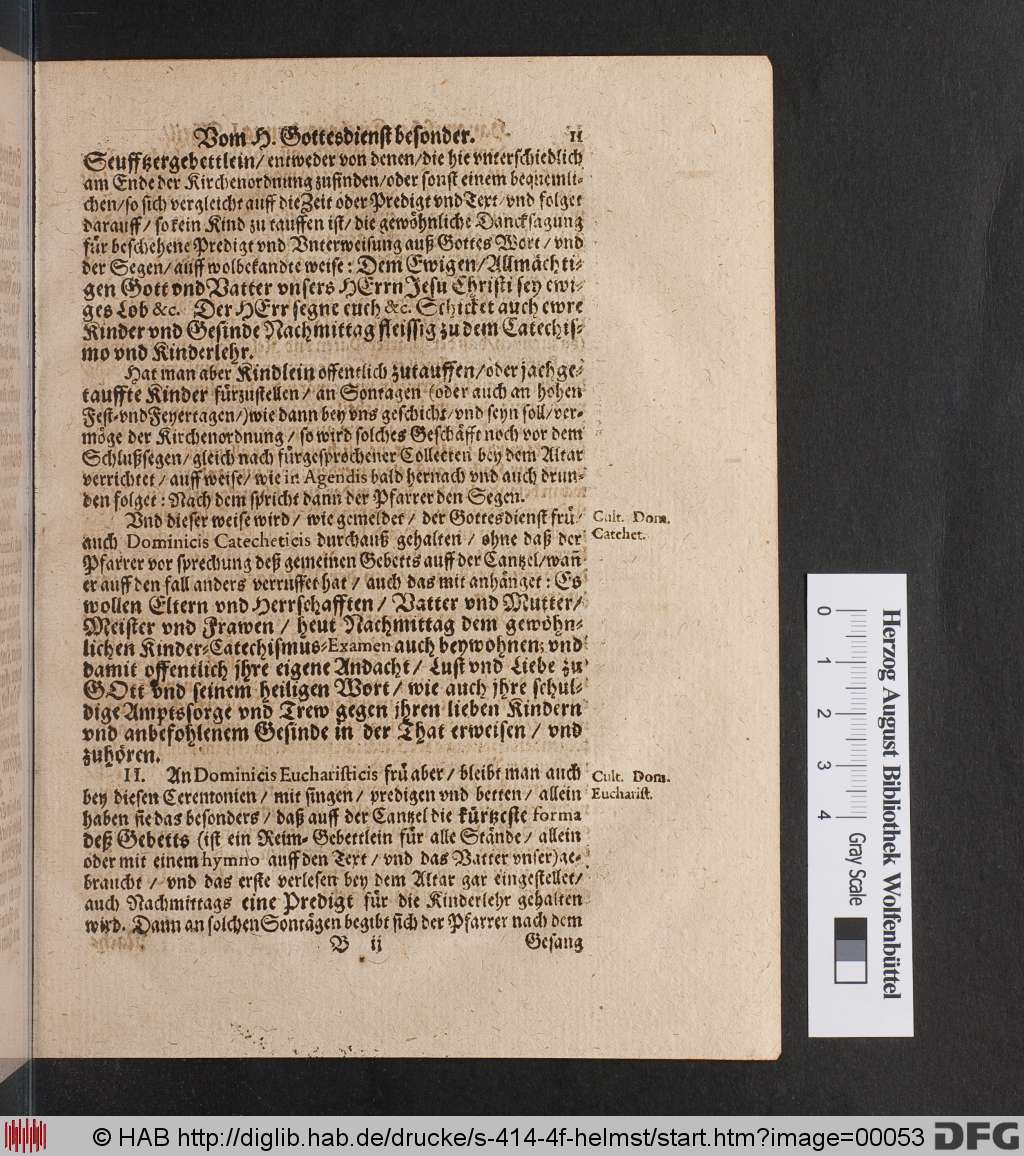 Vom H. Gottesdienst besonder. 11
Seufftzergebettlein/ entweder von denen/ die hie vnterschiedlich
am Ende der Kirchenordnung zufinden/ oder sonst einem bequemli-
chen/ so sich vergleicht auff die Zeit oder Predigt vnd Text/ vnd folget
darauff/ so kein Kind zu tauffen ist/ die gewöhnliche Dancksagung
für beschehene Predigt vnd Vnterweisung auß Gottes Wort/ vnd
der Segen/ auff wolbekandte weise: Dem Ewigen/ Allmächti-
gen Gott vnd Vatter vnsers HErrn Jesu Christi sey ewi-
ges Lob &c. Der HErr segne euch &c. Schicket auch ewre
Kinder vnd Gesinde Nachmittag fleissig zu dem Catechis-
mo vnd Kinderlehr.
Hat man aber Kindlein offentlich zutauffen/ oder jachge-
tauffte Kinder fürzustellen/ an Sontagen (oder auch an hohen
Fest- vnd Feyertagen/) wie dann bey vns geschicht/ vnd seyn soll/ ver-
möge der Kirchenordnung/ so wird solches Geschäfft noch vor dem
Schlußsegen/ gleich nach fürgesprochener Collecten bey dem Altar
verrichtet/ auff weise/ wie in Agendis bald hernach vnd auch drun-
den folget: Nach dem spricht dann der Pfarrer den Segen.
Vnd dieser weise wird/ wie gemeldet/ der Gottesdienst frü/
auch Dominicis Catecheticis durchauß gehalten/ ohne daß der
Pfarrer vor sprechung deß gemeinen Gebetts auff der Cantzel/ wañ
er auff den fall anders verruffet hat/ auch das mit anhänget: Es
wollen Eltern vnd Herrschafften/ Vatter vnd Mutter/
Meister vnd Frawen/ heut Nachmittag dem gewöhn-
lichen Kinder-Catechismus-Examen auch beywohnen; vnd
damit offentlich jhre eigene Andacht/ Lust vnd Liebe zu
GOtt vnd seinem heiligen Wort/ wie auch jhre schul-
dige Amptssorge vnd Trew gegen jhren lieben Kindern
vnd anbefohlenem Gesinde in der That erweisen/ vnd
zuhören.
Cult. Dom.
Catehet.
II. An Dominicis Eucharisticis frü aber/ bleibt man auch
bey diesen Ceremonien/ mit singen/ predigen vnd betten/ allein
haben sie das besonders/ daß auff der Cantzel die kürtzeste forma
deß Gebetts (ist ein Reim-Gebettlein für alle Stände/ allein
oder mit einem hymno auff den Text/ vnd das Vatter vnser) ge-
braucht/ vnd das erste verlesen bey dem Altar gar eingestellet/
auch Nachmittags eine Predigt für die Kinderlehr gehalten
wird. Dann an solchen Sontägen begibt sich der Pfarrer nach dem
Cult. Dom.
Eucharist.
B ij Gesang
Herzog August Bibliothek Wolfenbüttel
0 1 2 3 4 Gray Scale
© HAB http://diglib.hab.de/drucke/s-414-4f-helmst/start.htm?image=00053 DFG